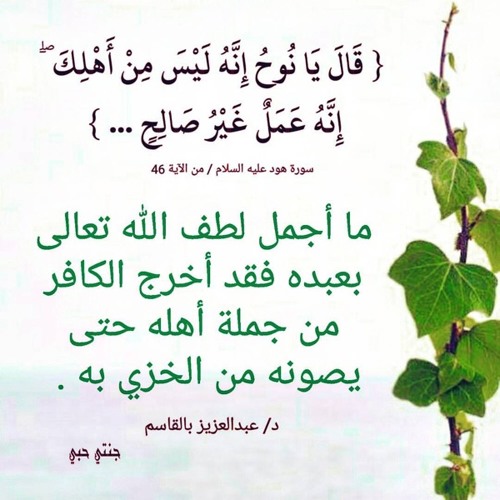 { قَالَ يَا نُوحُ إِنَّهُ لَيْسَ مِنْ أَهْلِكَ ۖ
إِنَّهُ عَمَلٌ غَيْرُ صَالِحٍ ... }
سورة هود عليه السلام / من الآية 46
ما أجمل لطف الله تعالى
بعبده فقد أخرج الكافر
من جملة أهله حتى
يصونه من الخزي به .
د/ عبدالعزيز بالقاسم
جنتي حبي